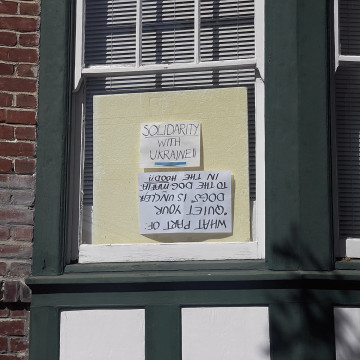 SOLIDARITY
WITH
UKRAINE!!
WHAT PART OF:
"QUIET YOUR
DOGS" IS UNCLEAR
TO THE DOG
IN THE HOOD?!